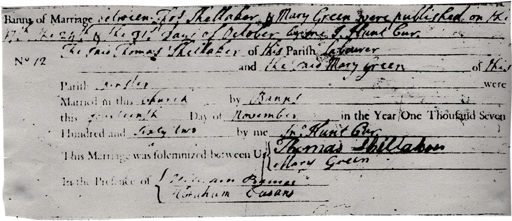 Banns of Marriage between Thos Shellaker & Mary Green were published on the
17th the 24th & the 31st Days of October by me J. Hunt Cur.
No 12 The said Thomas Shellaker of this Parish Labourer
and the said Mary Green of this
Parish were
Married in this Church by Banns
this Day of November in the Year One Thousand Seven
Hundred and sixty two by me Jn. Hunt Cur.
This Marriage was solemnized between Us Thomas Shellaker
Mary Green
In the Presence of
Abraham